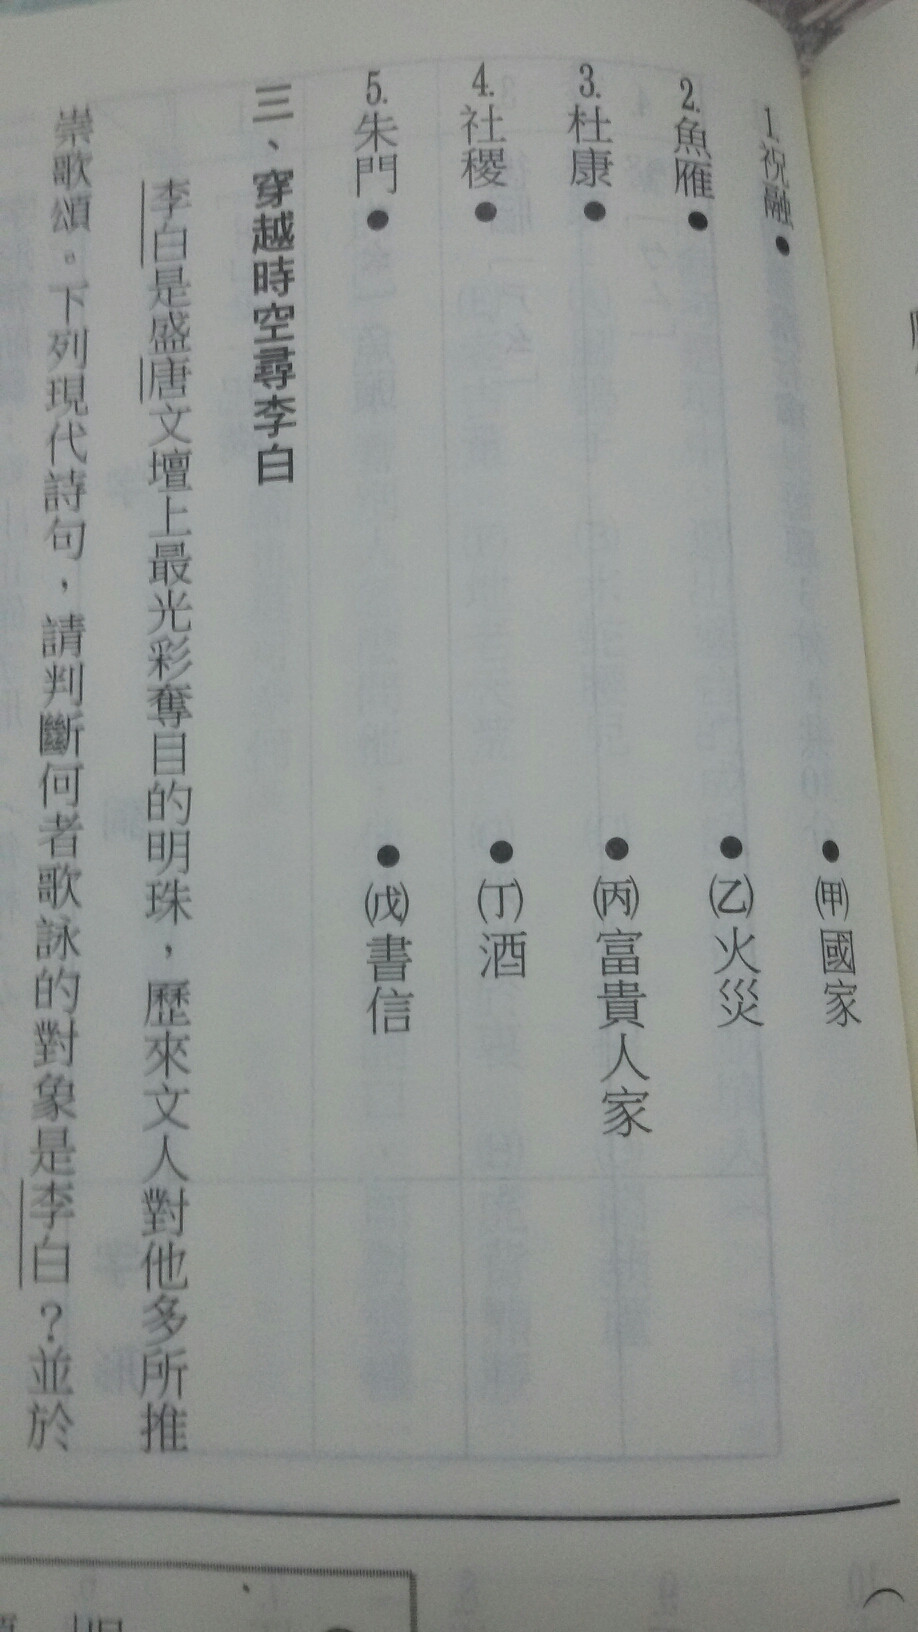 1.祝融
2.魚雁
3.杜康
4.社稷
5.朱門
(甲)國家
(乙)火災
(丙)富貴人家
(丁)酒
(戊)書信
三、穿越時空尋李白
李白是盛唐文壇上最光彩奪目的明珠，歷來文人對他多所推
崇歌頌。下列現代詩句，請判斷何者歌詠的對象是李白？並於